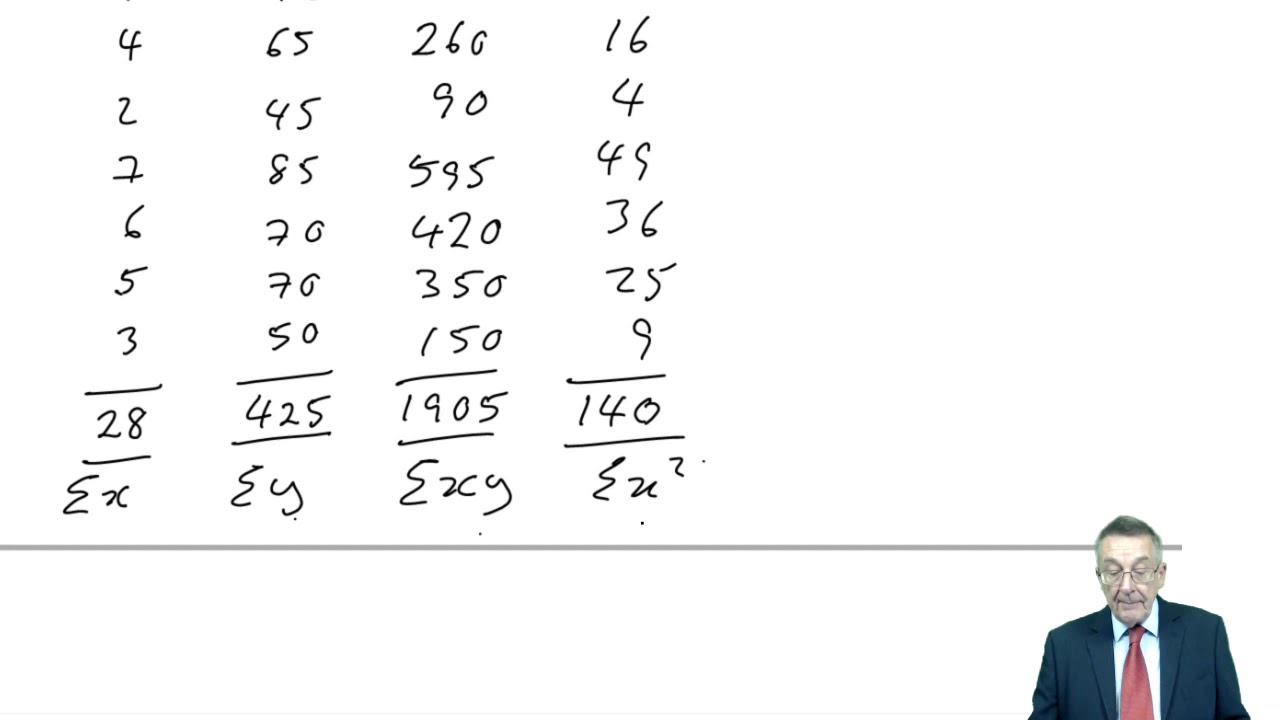 4 65 260 16
2 45 90 4
7 85 595 49
6 70 420 36
5 70 350 25
3 50 150 9
28 425 1905 140
Σx Σy Σxy Σx²